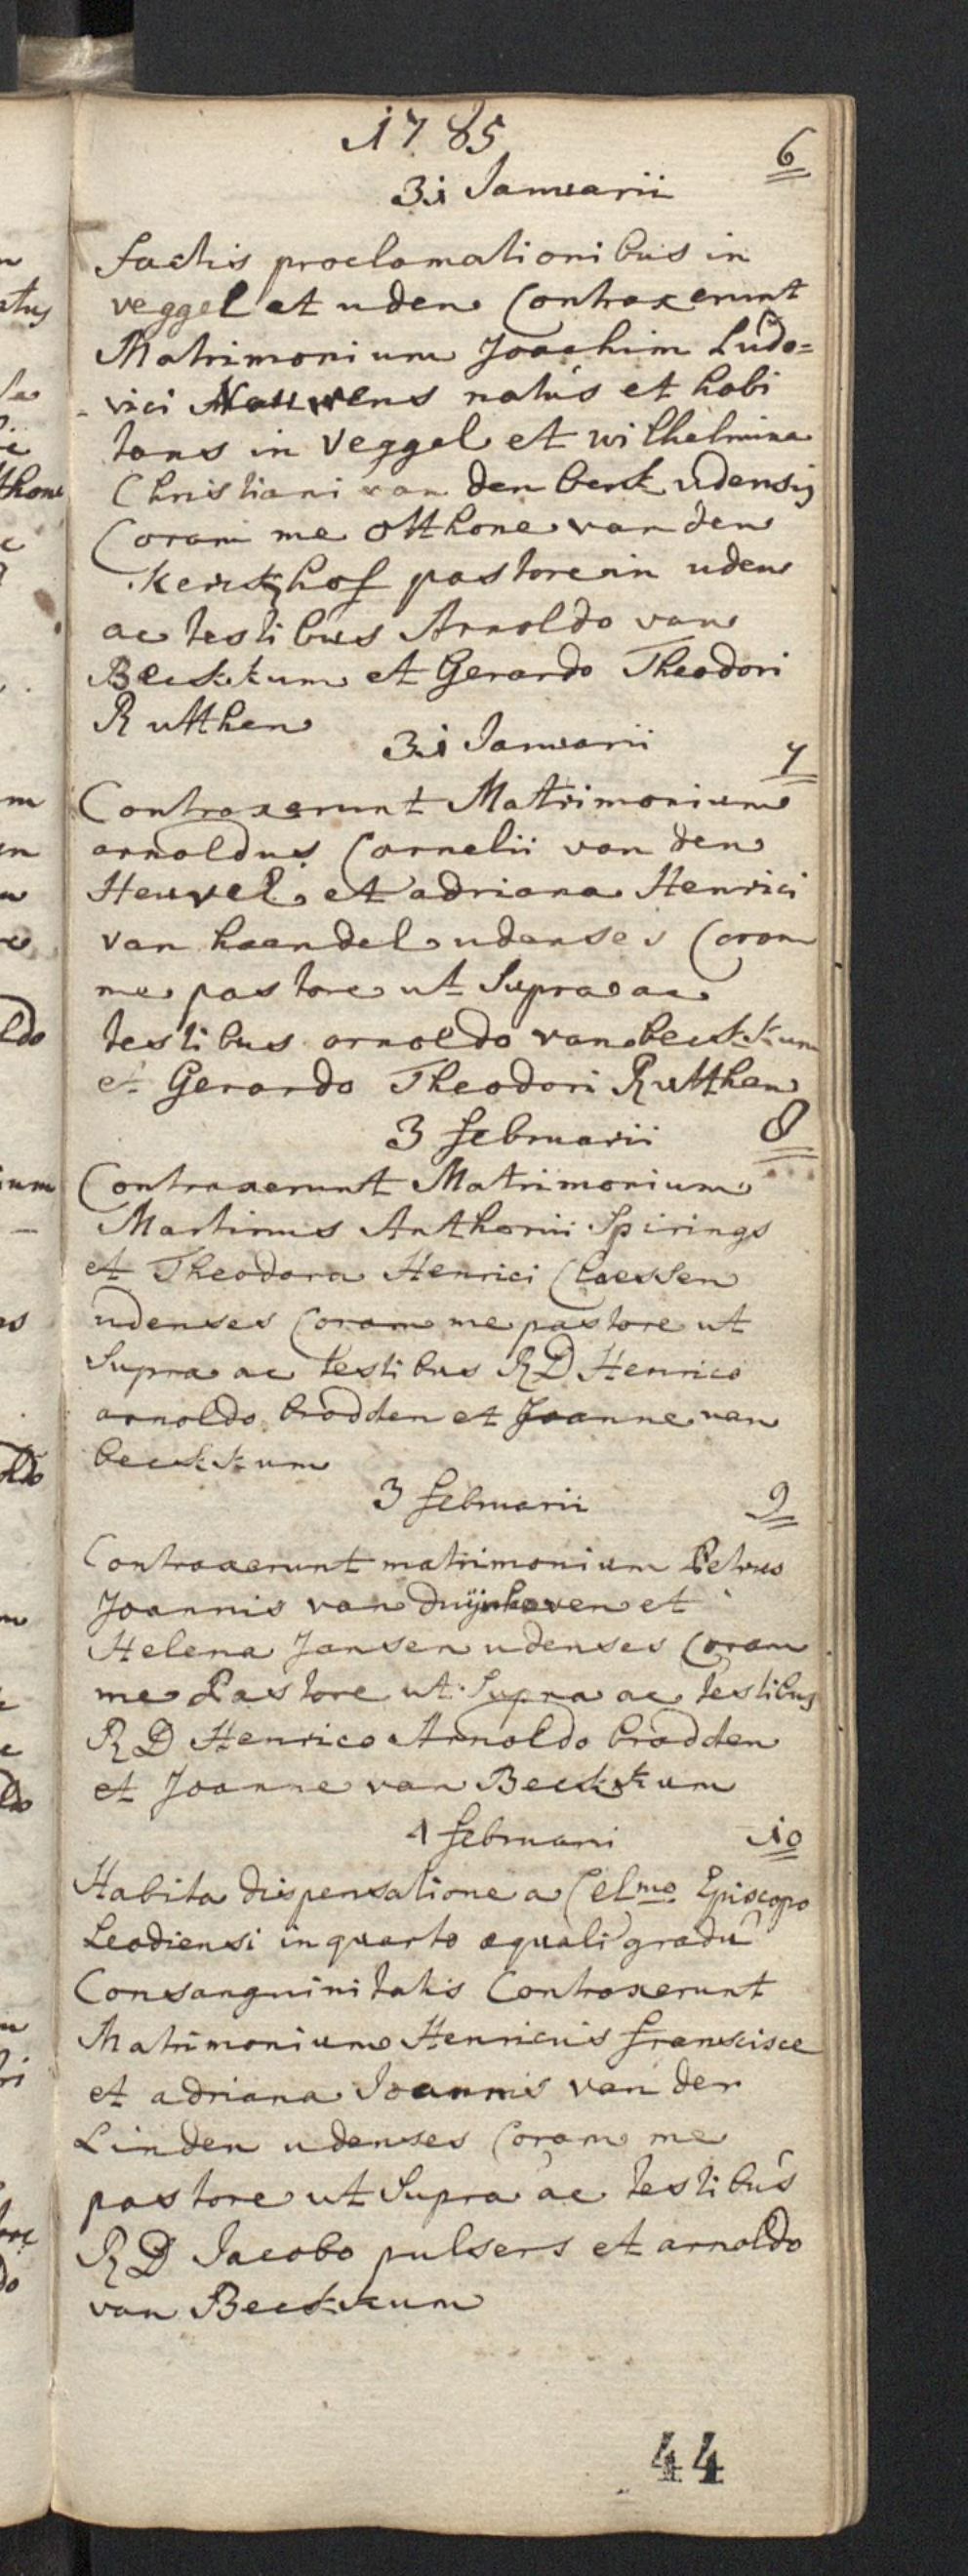 1785
6
31 Januarii
factis proclamationibus in
veggel et uden Contraxerunt
Matrimonium Joachim Ludo=
vici Nouwens natus et habi
tans in Veggel et wilhelmina
Christiani van den berk udensis
Coram me Otthone van den
kerkhof pastore in uden
ac testibus Arnoldo van
Beekkum et Gerardo Theodori
Rutthen
31 Januarii
7
Contraxerunt Matrimonium
arnoldus Cornelii van den
Heuvel et adriana Henrici
van haandel udenses Coram
me pastore ut Supra ac
testibus arnoldo van beekkum
et Gerardo Theodori Rutthen
3 februarii
8
Contraxerunt Matrimonium
Martinus Anthonii Spirings
et Theodora Henrici Claessen
udenses Coram me pastore ut
Supra ac testibus RD Henrico
arnoldo brodden et Joanne van
beekkum
3 februarii
9
Contraxerunt matrimonium Petrus
Joannis van duijnhoven et
Helena Jansen udenses Coram
me Pastore ut Supra ac testibus
RD Henrico Arnoldo brodden
et Joanne van Beekkum
februarii
10
Habita dispensatione a Celmo Episcopo
Leodiensi in quarto aequali gradu
Consanguinitatis Contraxerunt
Matrimonium Henricus franscisce
et adriana Joannis van der
Linden udenses Coram me
pastore ut Supra ac testibus
RD Jacobo pulsers et arnoldo
van Beekkum
44